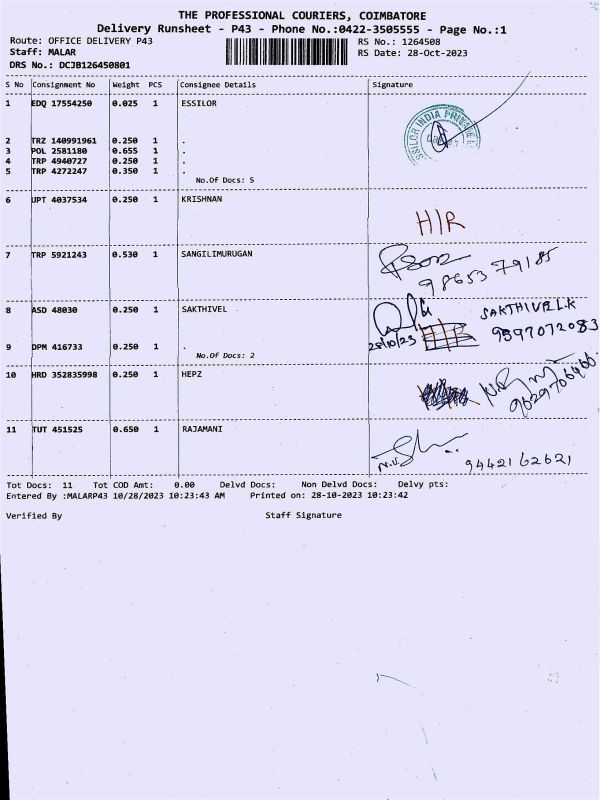 THE PROFESSIONAL COURIERS, COIMBATORE
Delivery Runsheet - P43 - Phone No.:0422-3505555 - Page No.:1
Route: OFFICE DELIVERY P43 RS No.: 1264508
Staff: MALAR RS Date: 28-Oct-2023
DRS No.: DCJB126450801
S No Consignment No Weight PCS Consignee Details Signature
1 EDQ 17554250 0.025 1 ESSILOR
SSILOR INDIA PRIVATE
2 TRZ 140991961 0.250 1 .
3 POL 2581180 0.655 1 .
4 TRP 4940727 0.250 1 .
5 TRP 4272247 0.350 1 .
No.Of Docs: 5
6 JPT 4037534 0.250 1 KRISHNAN
HIR
7 TRP 5921243 0.530 1 SANGILIMURUGAN
98653 79185
8 ASD 48030 0.250 1 SAKTHIVEL SAKTHIVEL.K
28/10/23 9597072083
9 DPM 416733 0.250 1 .
No.Of Docs: 2
10 HRD 352835998 0.250 1 HEPZ
11 TUT 451525 0.650 1 RAJAMANI
9442162621
Tot Docs: 11 Tot COD Amt: 0.00 Delvd Docs: Non Delvd Docs: Delvy pts:
Entered By :MALARP43 10/28/2023 10:23:43 AM Printed on: 28-10-2023 10:23:42
Verified By Staff Signature